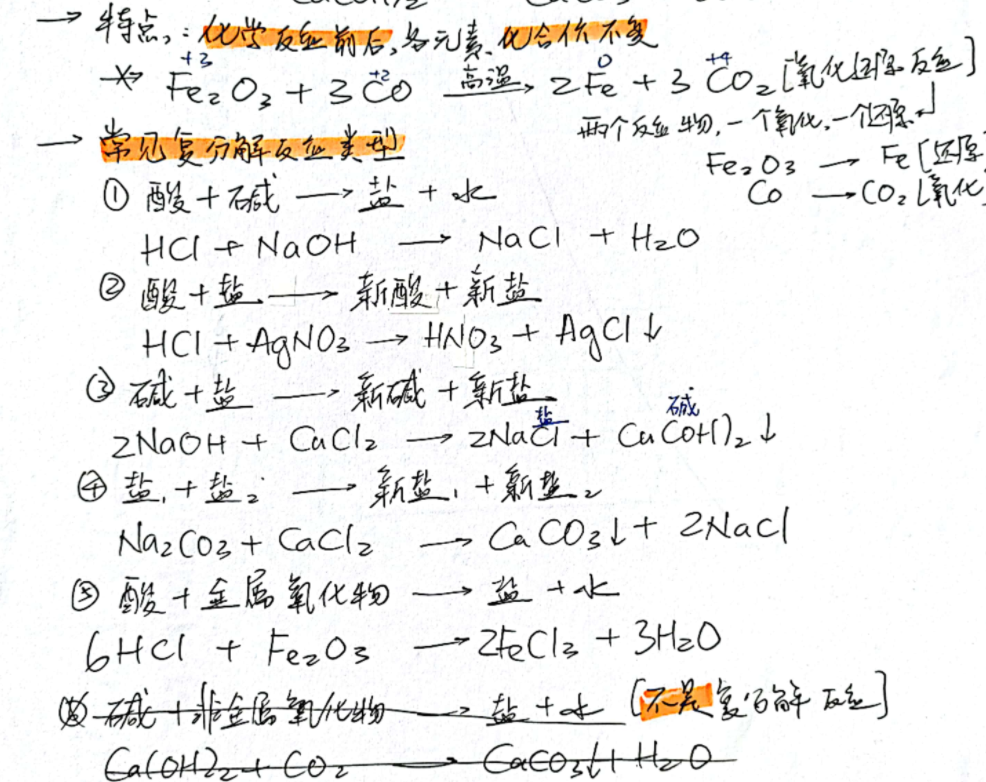 → 特点:化学反应前后,各元素化合价不变
+3 +2 0 +4
Fe₂O₃ + 3CO 高温→ 2Fe + 3CO₂ [氧化还原反应]
两个反应物,一个氧化,一个还原
Fe₂O₃ → Fe [还原
CO → CO₂ [氧化
→ 常见复分解反应类型
① 酸 + 碱 → 盐 + 水
HCl + NaOH → NaCl + H₂O
② 酸 + 盐 → 新酸 + 新盐
HCl + AgNO₃ → HNO₃ + AgCl↓
③ 碱 + 盐 → 新碱 + 新盐
盐 碱
2NaOH + CaCl₂ → 2NaCl + Ca(OH)₂↓
④ 盐₁ + 盐₂ → 新盐₁ + 新盐₂
Na₂CO₃ + CaCl₂ → CaCO₃↓ + 2NaCl
⑤ 酸 + 金属氧化物 → 盐 + 水
6HCl + Fe₂O₃ → 2FeCl₃ + 3H₂O
碱 + 非金属氧化物 → 盐 + 水 [不是复分解反应]
Ca(OH)₂ + CO₂ → CaCO₃↓ + H₂O